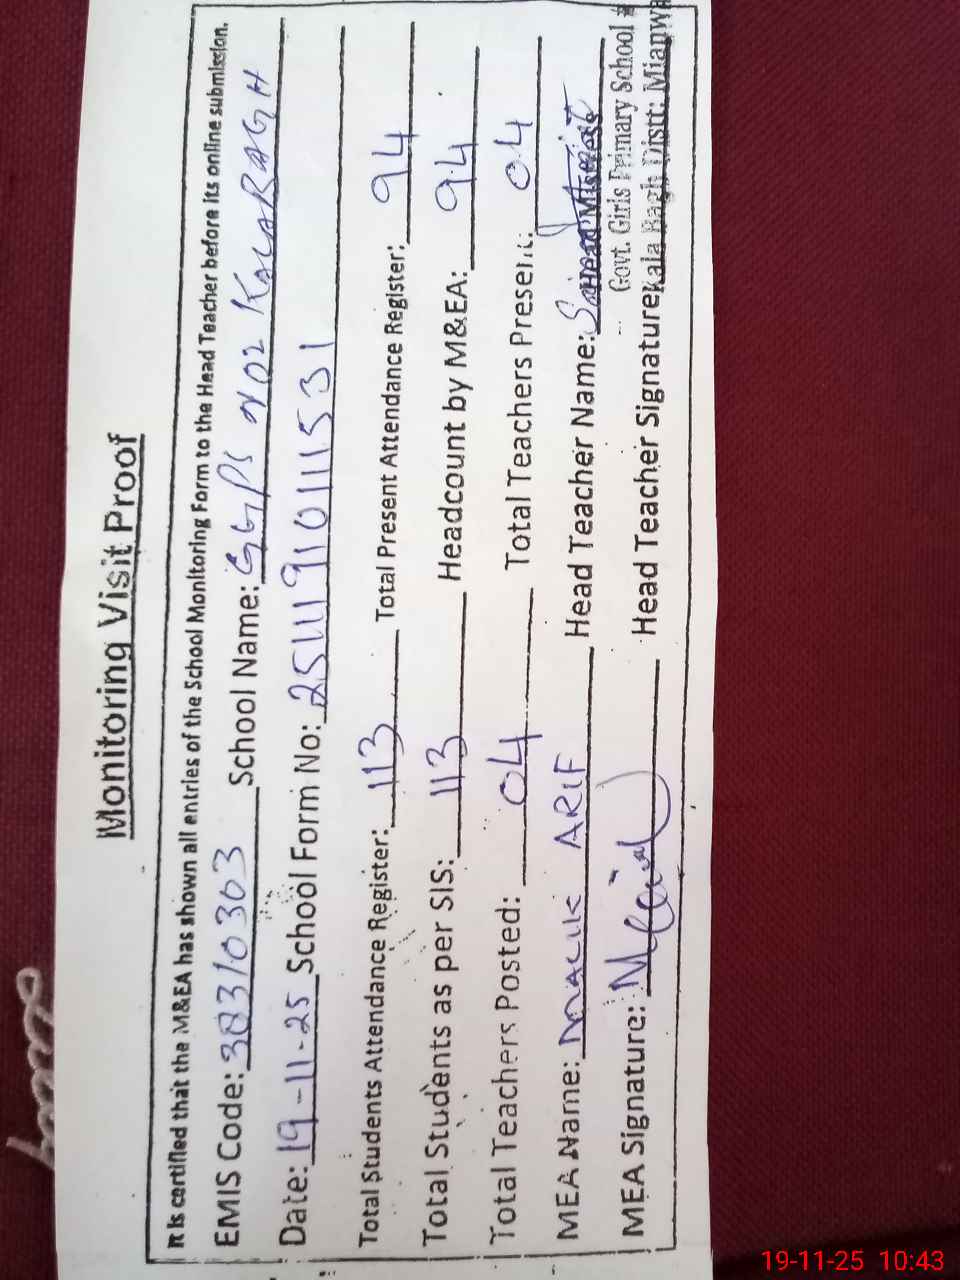 Monitoring Visit Proof
It is certified that the M&EA has shown all entries of the School Monitoring Form to the Head Teacher before its online submission.
EMIS Code: 38310303 School Name: GGPS NO2 KALABAGH
Date: 19-11-25 School Form No: 25111910111531
Total Students Attendance Register: 113 Total Present Attendance Register: 94
Total Students as per SIS: 113 Headcount by M&EA: 94
Total Teachers Posted: 04 Total Teachers Present: 04
MEA Name: MALIK ARIF Head Teacher Name:
Head Mistress
Govt. Girls Primary School #
MEA Signature: Head Teacher Signature:
Kala Bagh Distt: Mianwa
19-11-25 10:43